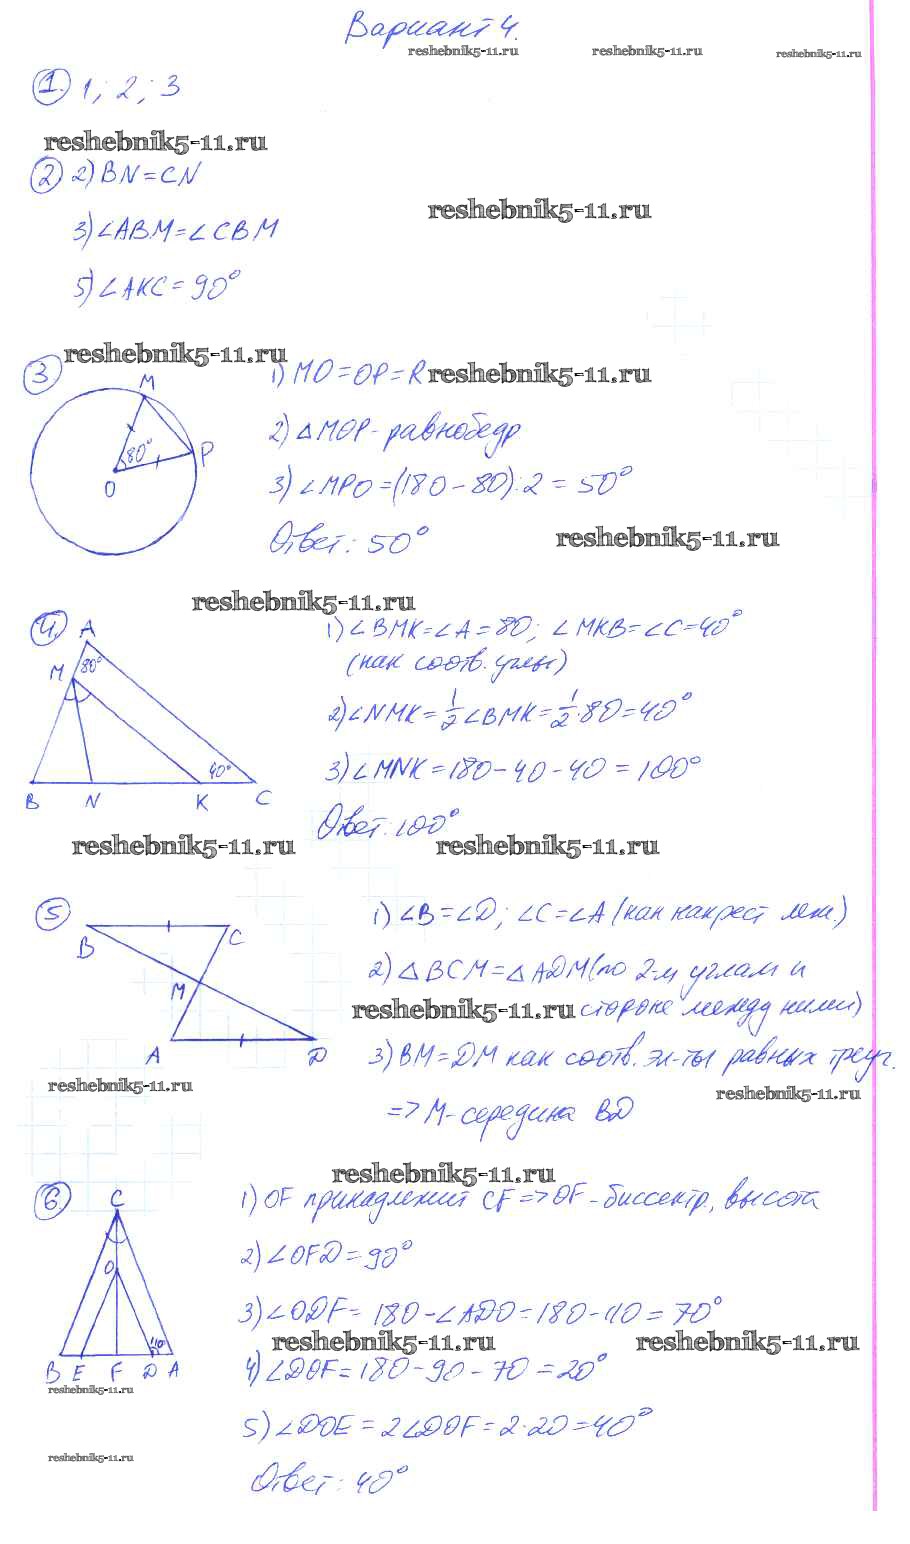 Вариант 4.
reshebnik5-11.ru reshebnik5-11.ru reshebnik5-11.ru
1. 1; 2; 3
reshebnik5-11.ru
2 2) BN=CN
reshebnik5-11.ru
3) ∠ABM=∠CBM
5) ∠AKC=90°
reshebnik5-11.ru
3 1) MO=OP=R reshebnik5-11.ru
M
2) △MOP- равнобедр
80° P
O
3) ∠MPO=(180-80):2=50°
Ответ: 50°
reshebnik5-11.ru
reshebnik5-11.ru
4. 1) ∠BMK=∠A=80; ∠MKB=∠C=40°
(как соотв. углы)
A
M 80°
2) ∠NMK=1/2∠BMK=1/2·80=40°
3) ∠MNK=180-40-40=100°
40°
B N K C
Ответ: 100°
reshebnik5-11.ru reshebnik5-11.ru
5 1) ∠B=∠D; ∠C=∠A (как накрест леж.)
B C
2) △BCM=△ADM (по 2-м углам и
M
reshebnik5-11.ru стороне между ними)
A D
3) BM=DM как соотв. эл-ты равных треуг.
reshebnik5-11.ru reshebnik5-11.ru
=> M-середина BD
reshebnik5-11.ru
6. 1) OF принадлежит CF => OF-биссектр., высота
C
2) ∠OFD=90°
O
3) ∠ODF=180-∠ADO=180-110=70°
reshebnik5-11.ru reshebnik5-11.ru
110
B E F D A
4) ∠DOF=180-90-70=20°
reshebnik5-11.ru
5) ∠DOE=2∠DOF=2·20=40°
reshebnik5-11.ru
Ответ: 40°